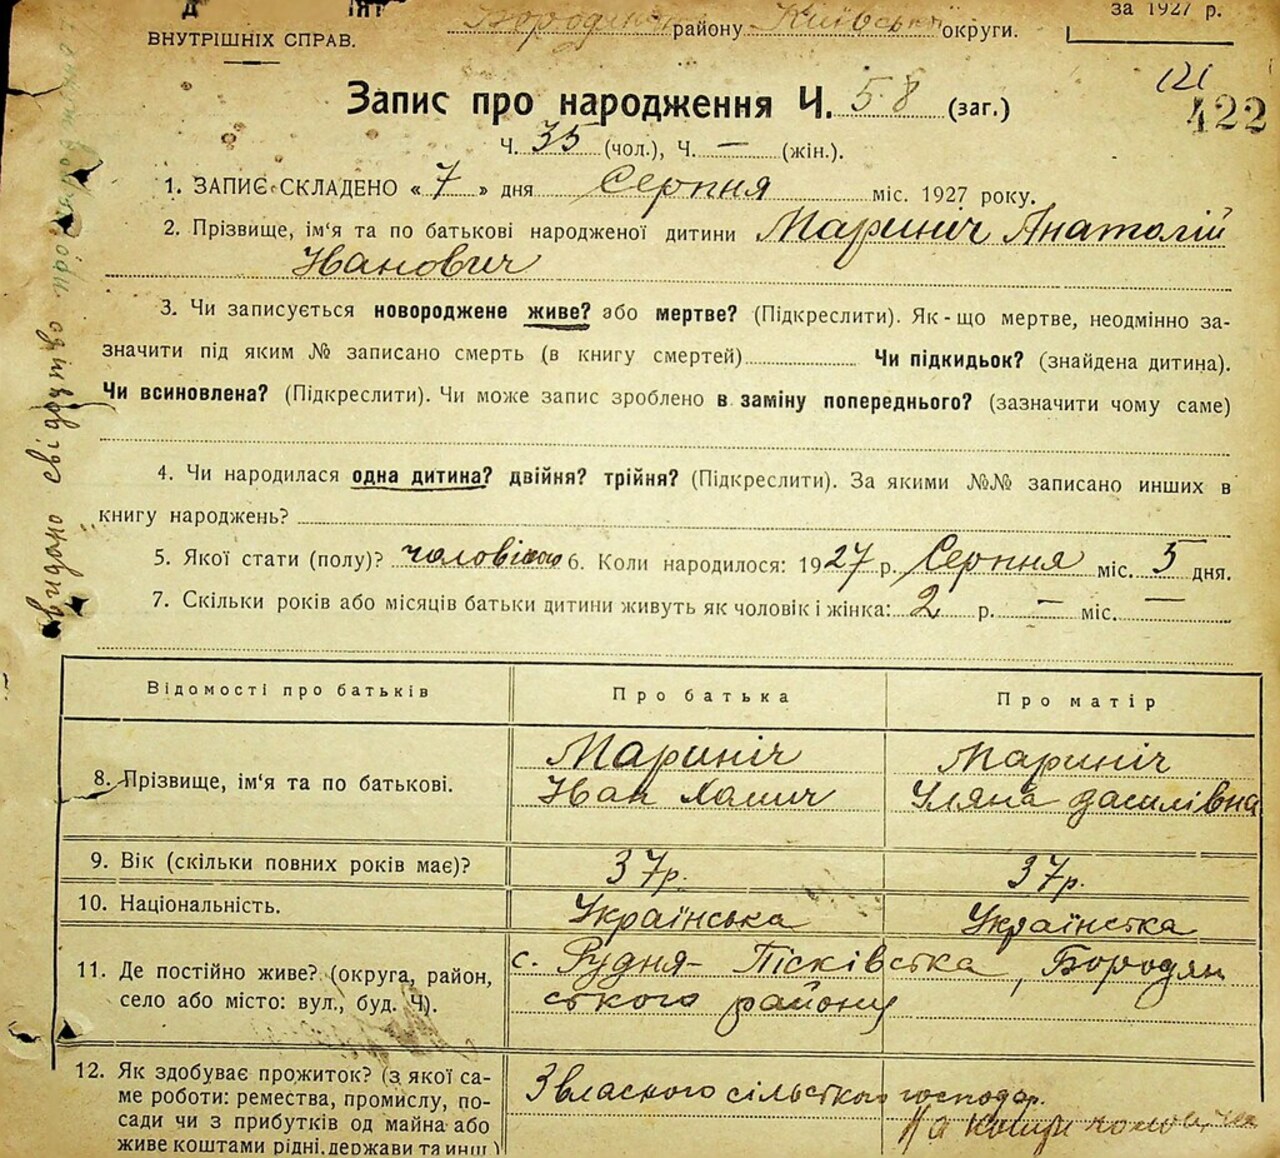 ВНУТРІШНІХ СПРАВ.
району Київської округи.
за 1927 р.
121
422
Запис про народження Ч. 58 (заг.)
Ч. 35 (чол.), Ч. — (жін.).
1. ЗАПИС СКЛАДЕНО « 7 » дня Серпня міс. 1927 року.
2. Прізвище, ім'я та по батькові народженої дитини Мариніч Анатолій
Іванович
3. Чи записується новороджене живе? або мертве? (Підкреслити). Як-що мертве, неодмінно за-
значити під яким № записано смерть (в книгу смертей) Чи підкидьок? (знайдена дитина).
Чи всиновлена? (Підкреслити). Чи може запис зроблено в заміну попереднього? (зазначити чому саме)
4. Чи народилася одна дитина? двійня? трійня? (Підкреслити). За якими №№ записано инших в
книгу народжень?
5. Якої стати (полу)? 6. Коли народилося: 1927 р. Серпня міс. 5 дня.
7. Скільки років або місяців батьки дитини живуть як чоловік і жінка: 2 р. — міс. —
Відомості про батьків Про батька Про матір
8. Прізвище, ім'я та по батькові.
Мариніч
Іван
Мариніч
Уляна Василівна
9. Вік (скільки повних років має)? 37р. 37р.
10. Національність. Українська Українська
11. Де постійно живе? (округа, район,
село або місто: вул., буд. Ч).
с. Рудня-Пісківська, Бородян
ського району
12. Як здобуває прожиток? (з якої са-
ме роботи: ремества, промислу, по-
сади чи з прибутків од майна або
живе коштами рідні, держави та инш.)
З власного сільського господар.
На кошти
видано свідоцтво про